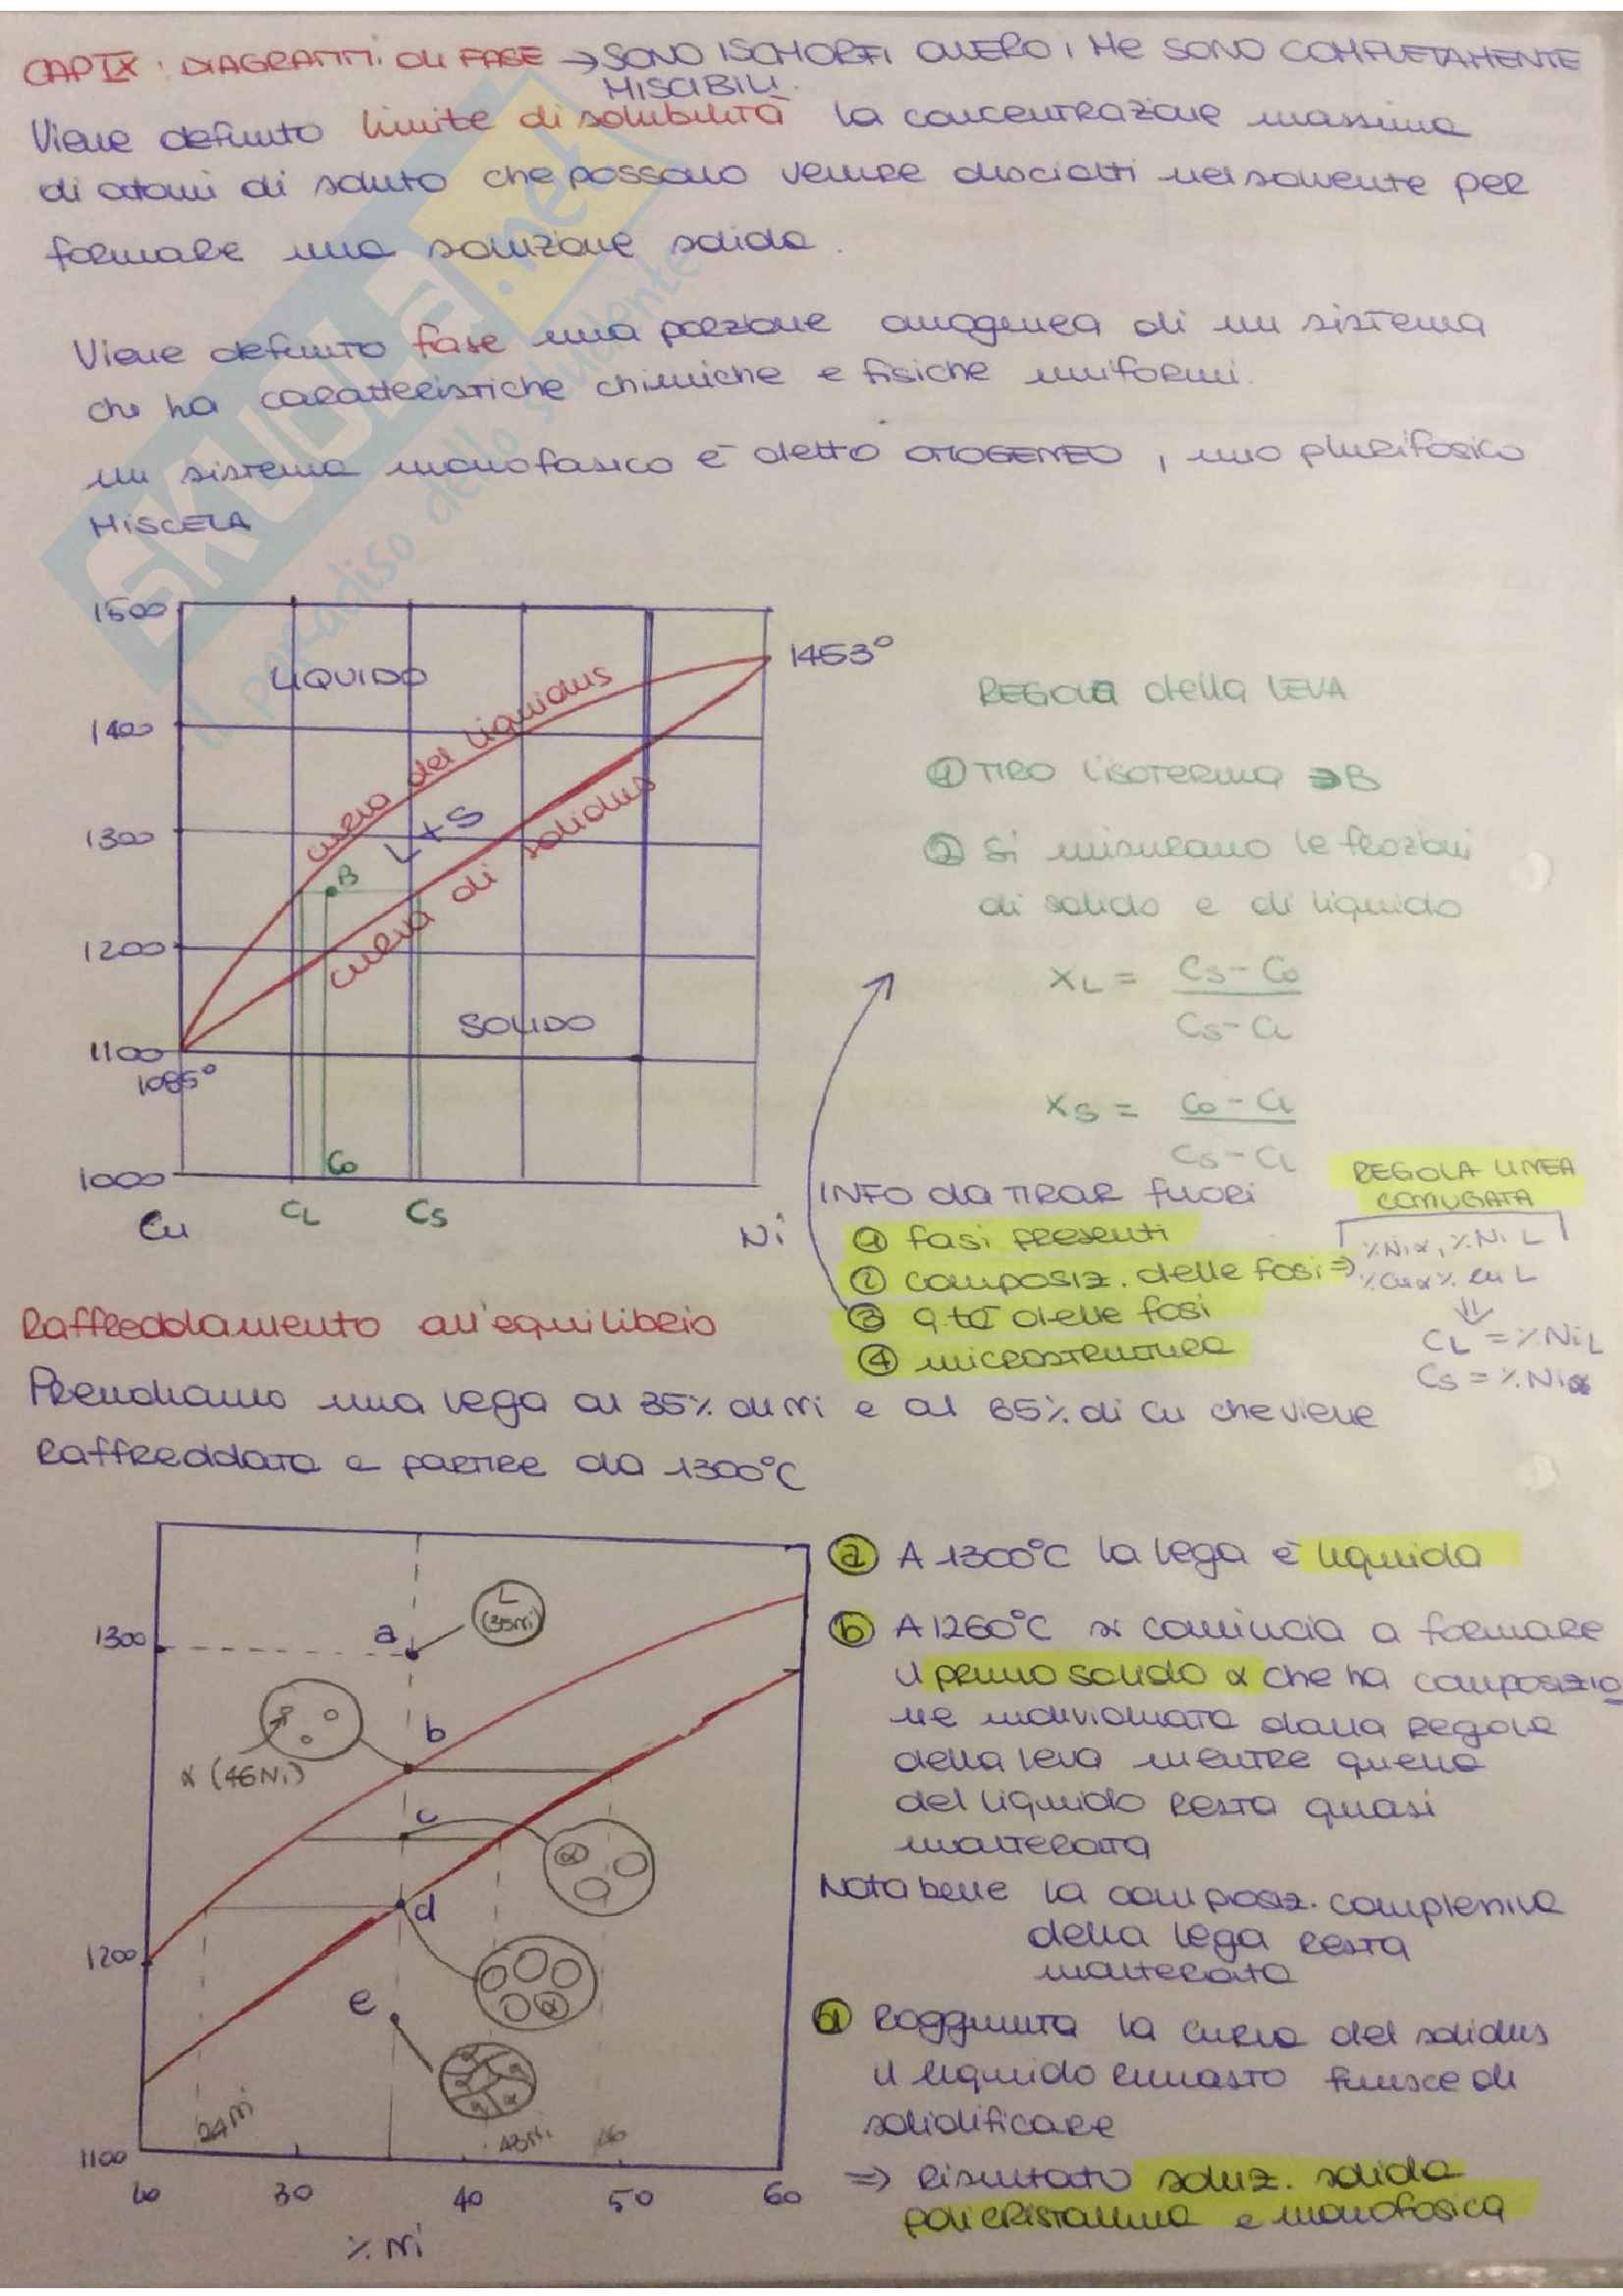 CAP IX : DIAGRAMMI DI FASE → SONO ISOMORFI OVVERO I ME SONO COMPLETAMENTE
MISCIBILI.
Viene definito limite di solubilità la concentrazione massima
di atomi di soluto che possono venire disciolti nel solvente per
formare una soluzione solida.
Viene definito fase una porzione omogenea di un sistema
che ha caratteristiche chimiche e fisiche uniformi.
un sistema monofasico è detto OMOGENEO, uno plurifasico
MISCELA
SKUOLA.net
il paradiso dello studente
1500
LIQUIDO
1453°
1400
curva del liquidus
1300
L+S
B
curva di solidus
1200
SOLIDO
1100
1085°
1000
Co
Cu
CL
CS
Ni
REGOLA della LEVA
① TIRO l'isoterma → B
② Si misurano le frazioni
di solido e di liquido
XL = CS - Co
CS - CL
XS = Co - CL
CS - CL
INFO da TIRAR fuori
① fasi presenti
② composiz. delle fasi ⇒
③ q.tà delle fasi
④ microstruttura
REGOLA LINEA
CONIUGATA
%Ni α, %Ni L
%Cu α % Cu L
⇓
CL = %Ni L
CS = %Ni α
Raffreddamento all'equilibrio
Prendiamo una lega al 35% di Ni e al 65% di Cu che viene
raffreddata a partire da 1300°C
1300
a
L
(35Ni)
b
α (46Ni)
c
α
d
α
1200
e
α
24Ni
43Ni
46
1100
30
40
50
60
% Ni
ⓐ A 1300°C la lega è liquida
ⓑ A 1260°C si comincia a formare
il primo solido α che ha composizio
ne individuata dalla regola
della leva mentre quella
del liquido resta quasi
inalterata
Nota bene la composiz. complessiva
della lega resta
inalterata
ⓓ Raggiunta la curva del solidus
il liquido rimasto finisce di
solidificare
⇒ risultato soluz. solida
policristallina e monofasica